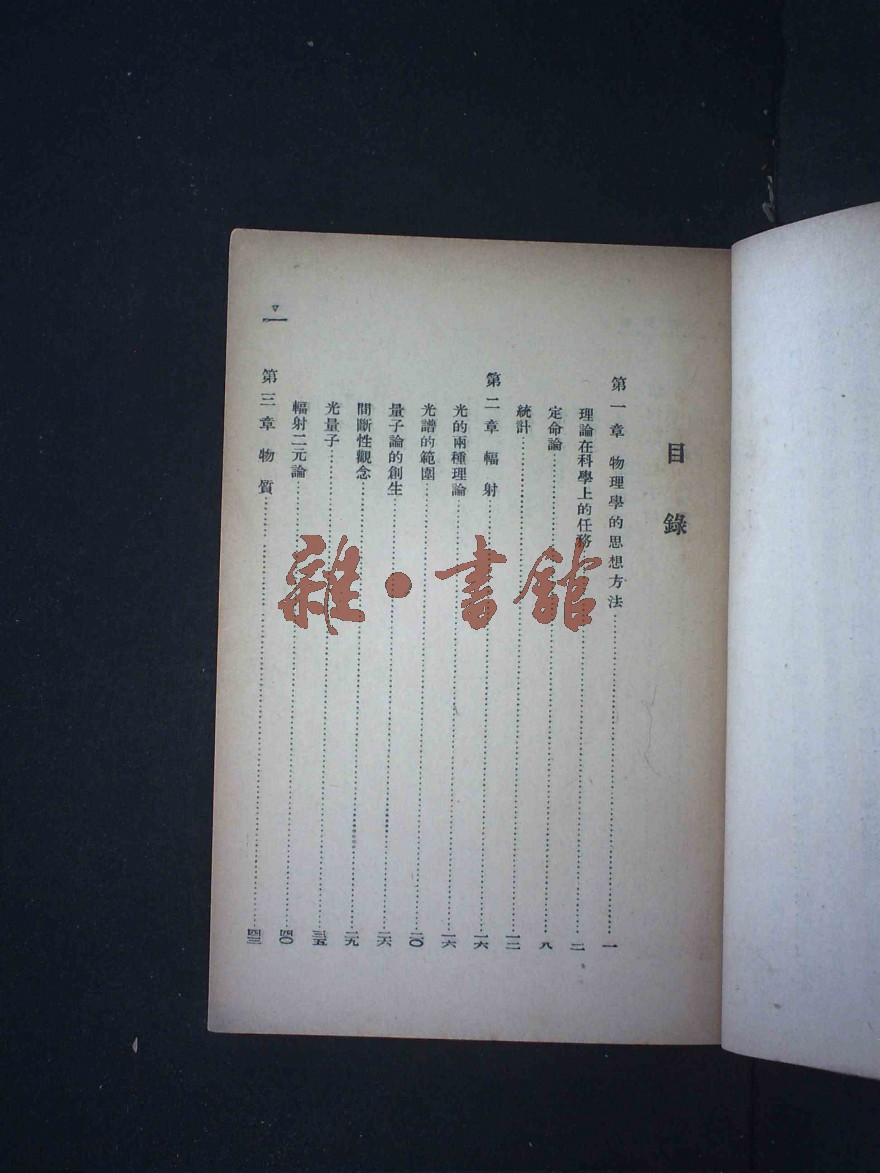 目錄
第一章 物理學的思想方法……一
理論在科學上的任務……二
定命論……八
統計……一二
第二章 輻射……一六
光的兩種理論……一六
光譜的範圍……二〇
量子論的創生……二六
間斷性觀念……二九
光量子……三五
輻射二元論……四〇
第三章 物質……四三
雜·書館